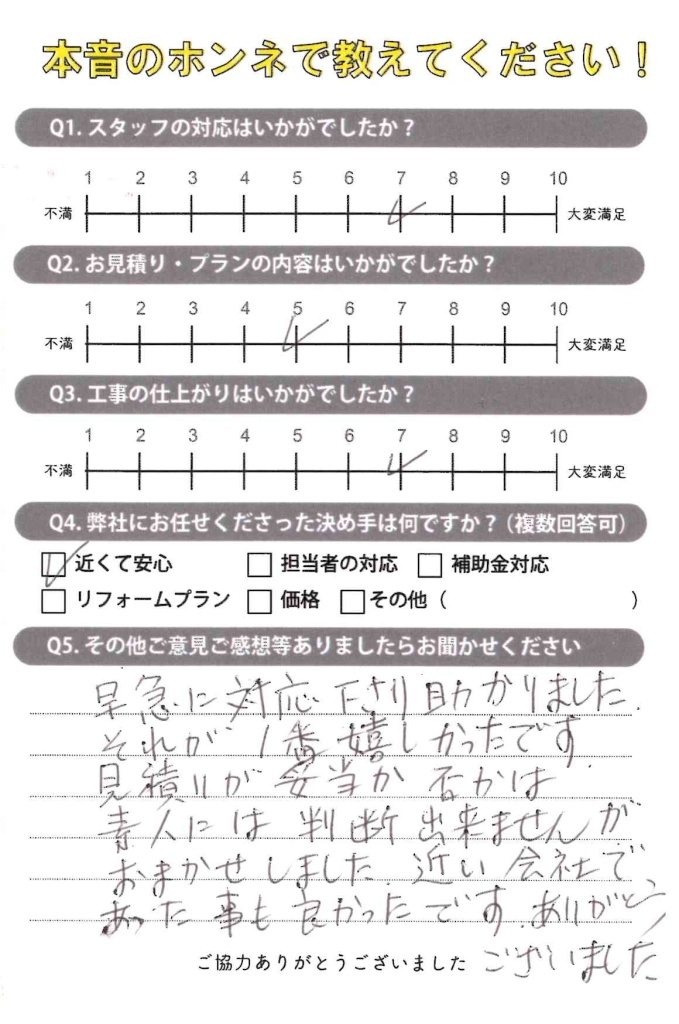 本音のホンネで教えてください！
Q1. スタッフの対応はいかがでしたか？
1 2 3 4 5 6 7 8 9 10
不満 大変満足
Q2. お見積り・プランの内容はいかがでしたか？
1 2 3 4 5 6 7 8 9 10
不満 大変満足
Q3. 工事の仕上がりはいかがでしたか？
1 2 3 4 5 6 7 8 9 10
不満 大変満足
Q4. 弊社にお任せくださった決め手は何ですか？（複数回答可）
近くて安心 担当者の対応 補助金対応
リフォームプラン 価格 その他（ ）
Q5. その他ご意見ご感想等ありましたらお聞かせください
早急に対応下さり助かりました.
それが1番嬉しかったです
見積りが妥当か否かは
素人には判断出来ませんが
おまかせしました.近い会社で
あった事も良かったです.ありがとう
ございました
ご協力ありがとうございました